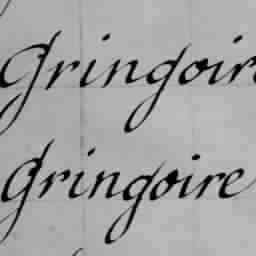 Gringoire
Gringoire